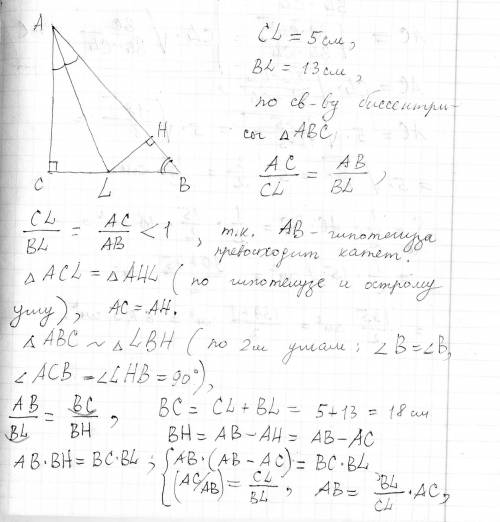 A
H
C
L
B
CL = 5см,
BL = 13см,
по св-ву биссектри-
сы △ABC
AC/CL = AB/BL ,
CL/BL = AC/AB < 1 , т.к. AB - гипотенуза
превосходит катет.
△ACL = △AHL ( по гипотенузе и острому
углу), AC = AH.
△ABC ~ △LBH ( по 2м углам : ∠B=∠B,
∠ACB = ∠LHB = 90°),
AB/BL = BC/BH , BC = CL + BL = 5+13 = 18 см
BH = AB - AH = AB - AC
AB·BH = BC·BL ; { AB·(AB - AC) = BC·BL
(AC/AB) = CL/BL , AB = BL/CL · AC ,